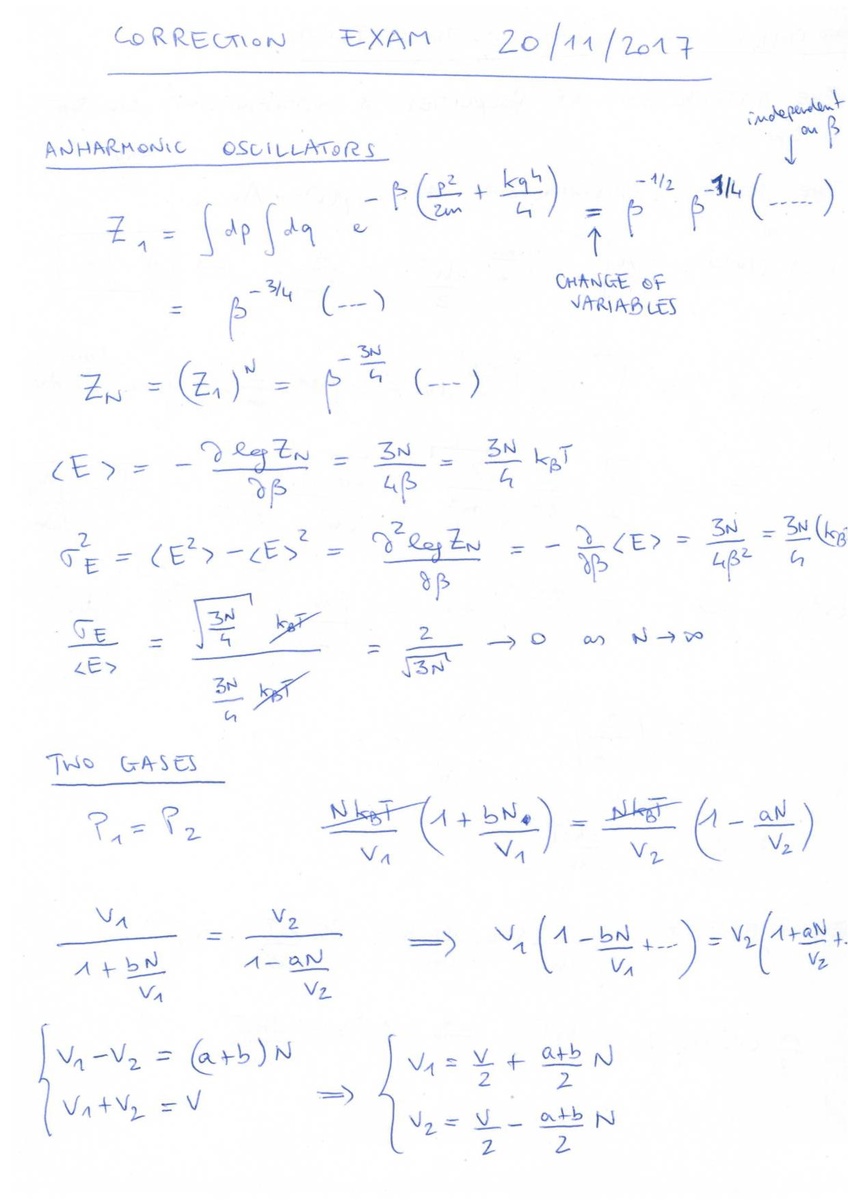 CORRECTION EXAM 20/11/2017
independent on β
↓
ANHARMONIC OSCILLATORS
Z_1 = ∫dp ∫dq e^{-β(p²/2m + kq⁴/4)} = β^{-1/2} β^{-1/4} (.....)
↑
CHANGE OF VARIABLES
= β^{-3/4} (---)
Z_N = (Z_1)^N = β^{-3N/4} (---)
⟨E⟩ = - ∂ log Z_N / ∂β = 3N/4β = 3N/4 k_BT
σ_E² = ⟨E²⟩ - ⟨E⟩² = ∂² log Z_N / ∂β = - ∂/∂β ⟨E⟩ = 3N/4β² = 3N/4 (k_B
σ_E/⟨E⟩ = √(3N/4) k_BT / (3N/4 k_BT) = 2/√3N → 0 as N → ∞
TWO GASES
P_1 = P_2 Nk_BT/V_1 (1 + bN/V_1) = Nk_BT/V_2 (1 - aN/V_2)
V_1/(1 + bN/V_1) = V_2/(1 - aN/V_2) ⟹ V_1 (1 - bN/V_1 + ---) = V_2 (1 + aN/V_2 + .
{ V_1 - V_2 = (a+b) N
V_1 + V_2 = V ⟹ { V_1 = V/2 + (a+b)/2 N
V_2 = V/2 - (a+b)/2 N